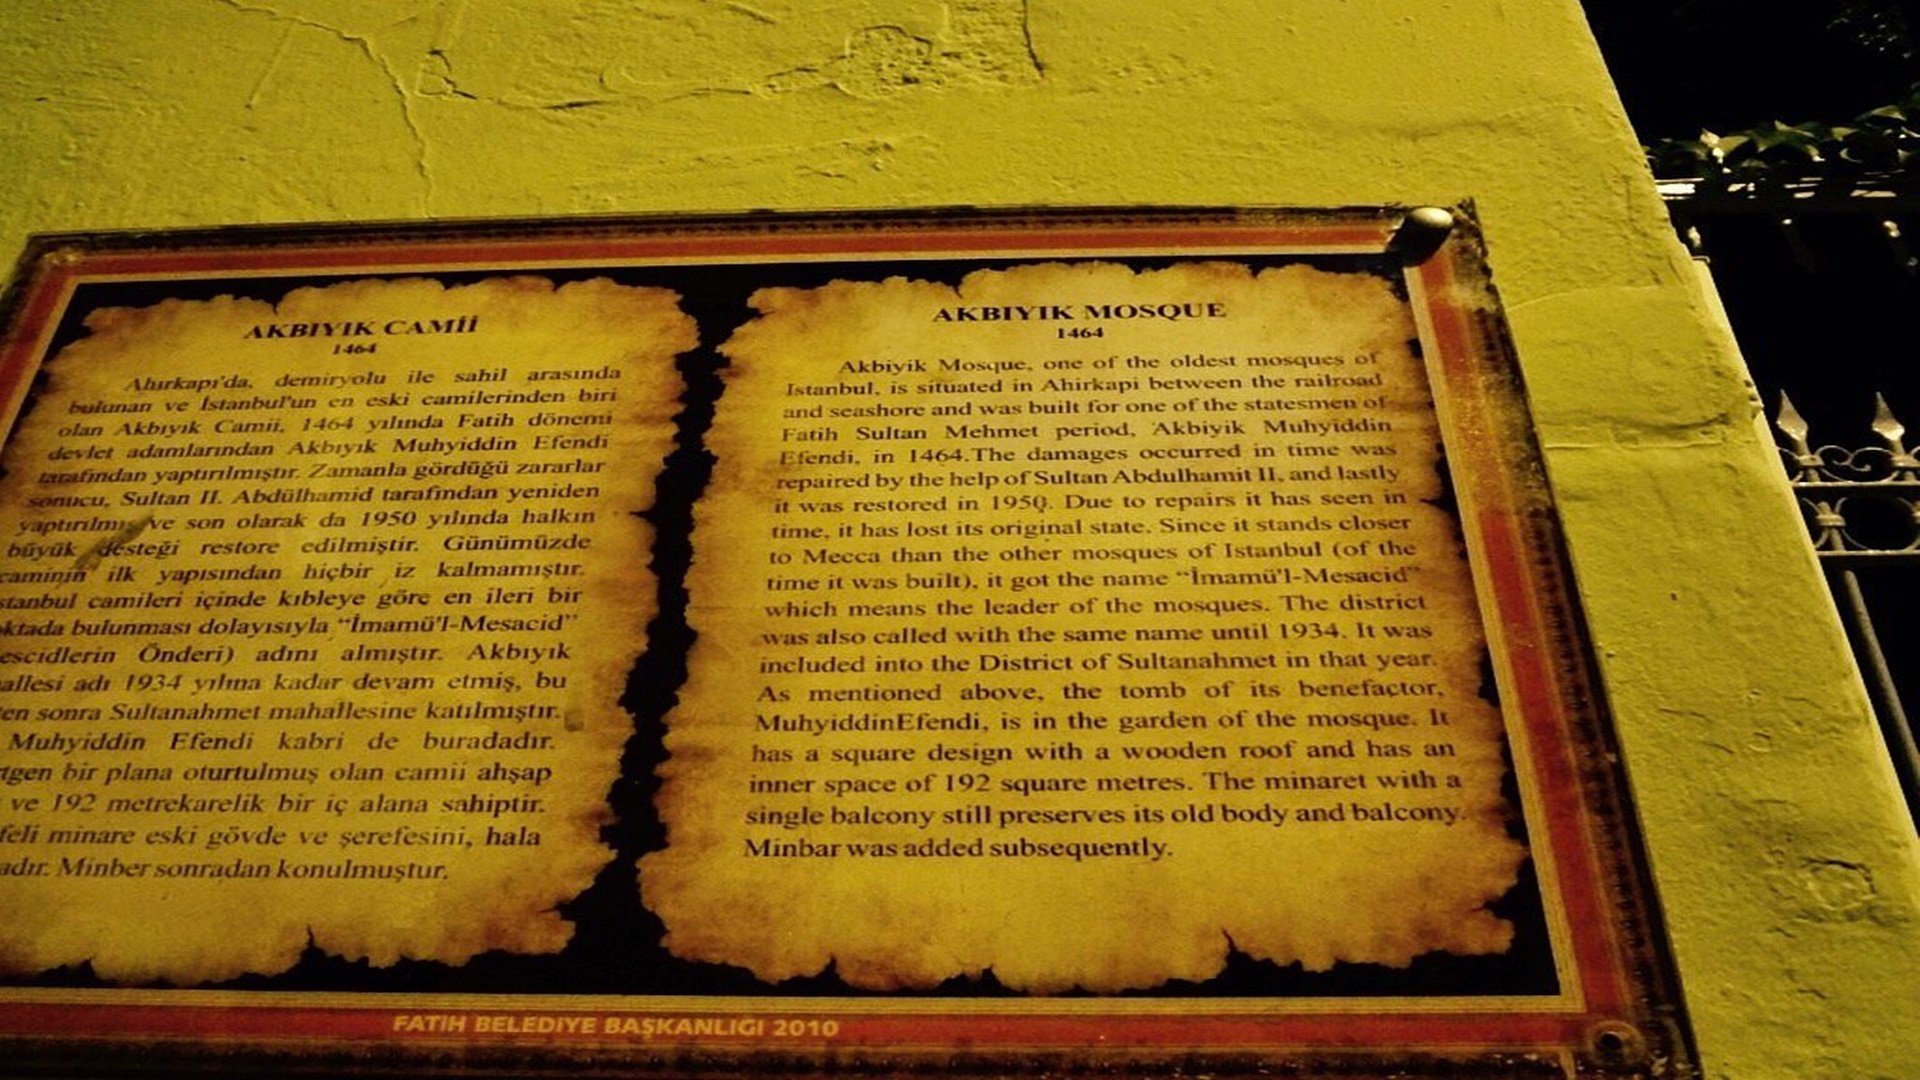 AKBIYIK CAMİİ
1464
Ahırkapı'da, demiryolu ile sahil arasında
bulunan ve İstanbul'un en eski camilerinden biri
olan Akbıyık Camii, 1464 yılında Fatih dönemi
devlet adamlarından Akbıyık Muhyiddin Efendi
tarafından yaptırılmıştır. Zamanla gördüğü zararlar
sonucu, Sultan II. Abdülhamid tarafından yeniden
yaptırılmış ve son olarak da 1950 yılında halkın
büyük desteği restore edilmiştir. Günümüzde
caminin ilk yapısından hiçbir iz kalmamıştır.
stanbul camileri içinde kıbleye göre en ileri bir
oktada bulunması dolayısıyla “İmamü'l-Mesacid”
escidlerin Önderi) adını almıştır. Akbıyık
allesi adı 1934 yılına kadar devam etmiş, bu
ten sonra Sultanahmet mahallesine katılmıştır.
Muhyiddin Efendi kabri de buradadır.
rtgen bir plana oturtulmuş olan camii ahşap
ve 192 metrekarelik bir iç alana sahiptir.
feli minare eski gövde ve şerefesini, hala
adır. Minber sonradan konulmuştur.
AKBIYIK MOSQUE
1464
Akbiyik Mosque, one of the oldest mosques of
Istanbul, is situated in Ahirkapi between the railroad
and seashore and was built for one of the statesmen of
Fatih Sultan Mehmet period, Akbiyik Muhyiddin
Efendi, in 1464.The damages occurred in time was
repaired by the help of Sultan Abdulhamit II, and lastly
it was restored in 1950. Due to repairs it has seen in
time, it has lost its original state. Since it stands closer
to Mecca than the other mosques of Istanbul (of the
time it was built), it got the name “İmamü'l-Mesacid”
which means the leader of the mosques. The district
was also called with the same name until 1934. It was
included into the District of Sultanahmet in that year.
As mentioned above, the tomb of its benefactor,
MuhyiddinEfendi, is in the garden of the mosque. It
has a square design with a wooden roof and has an
inner space of 192 square metres. The minaret with a
single balcony still preserves its old body and balcony.
Minbar was added subsequently.
FATİH BELEDİYE BAŞKANLIĞI 2010